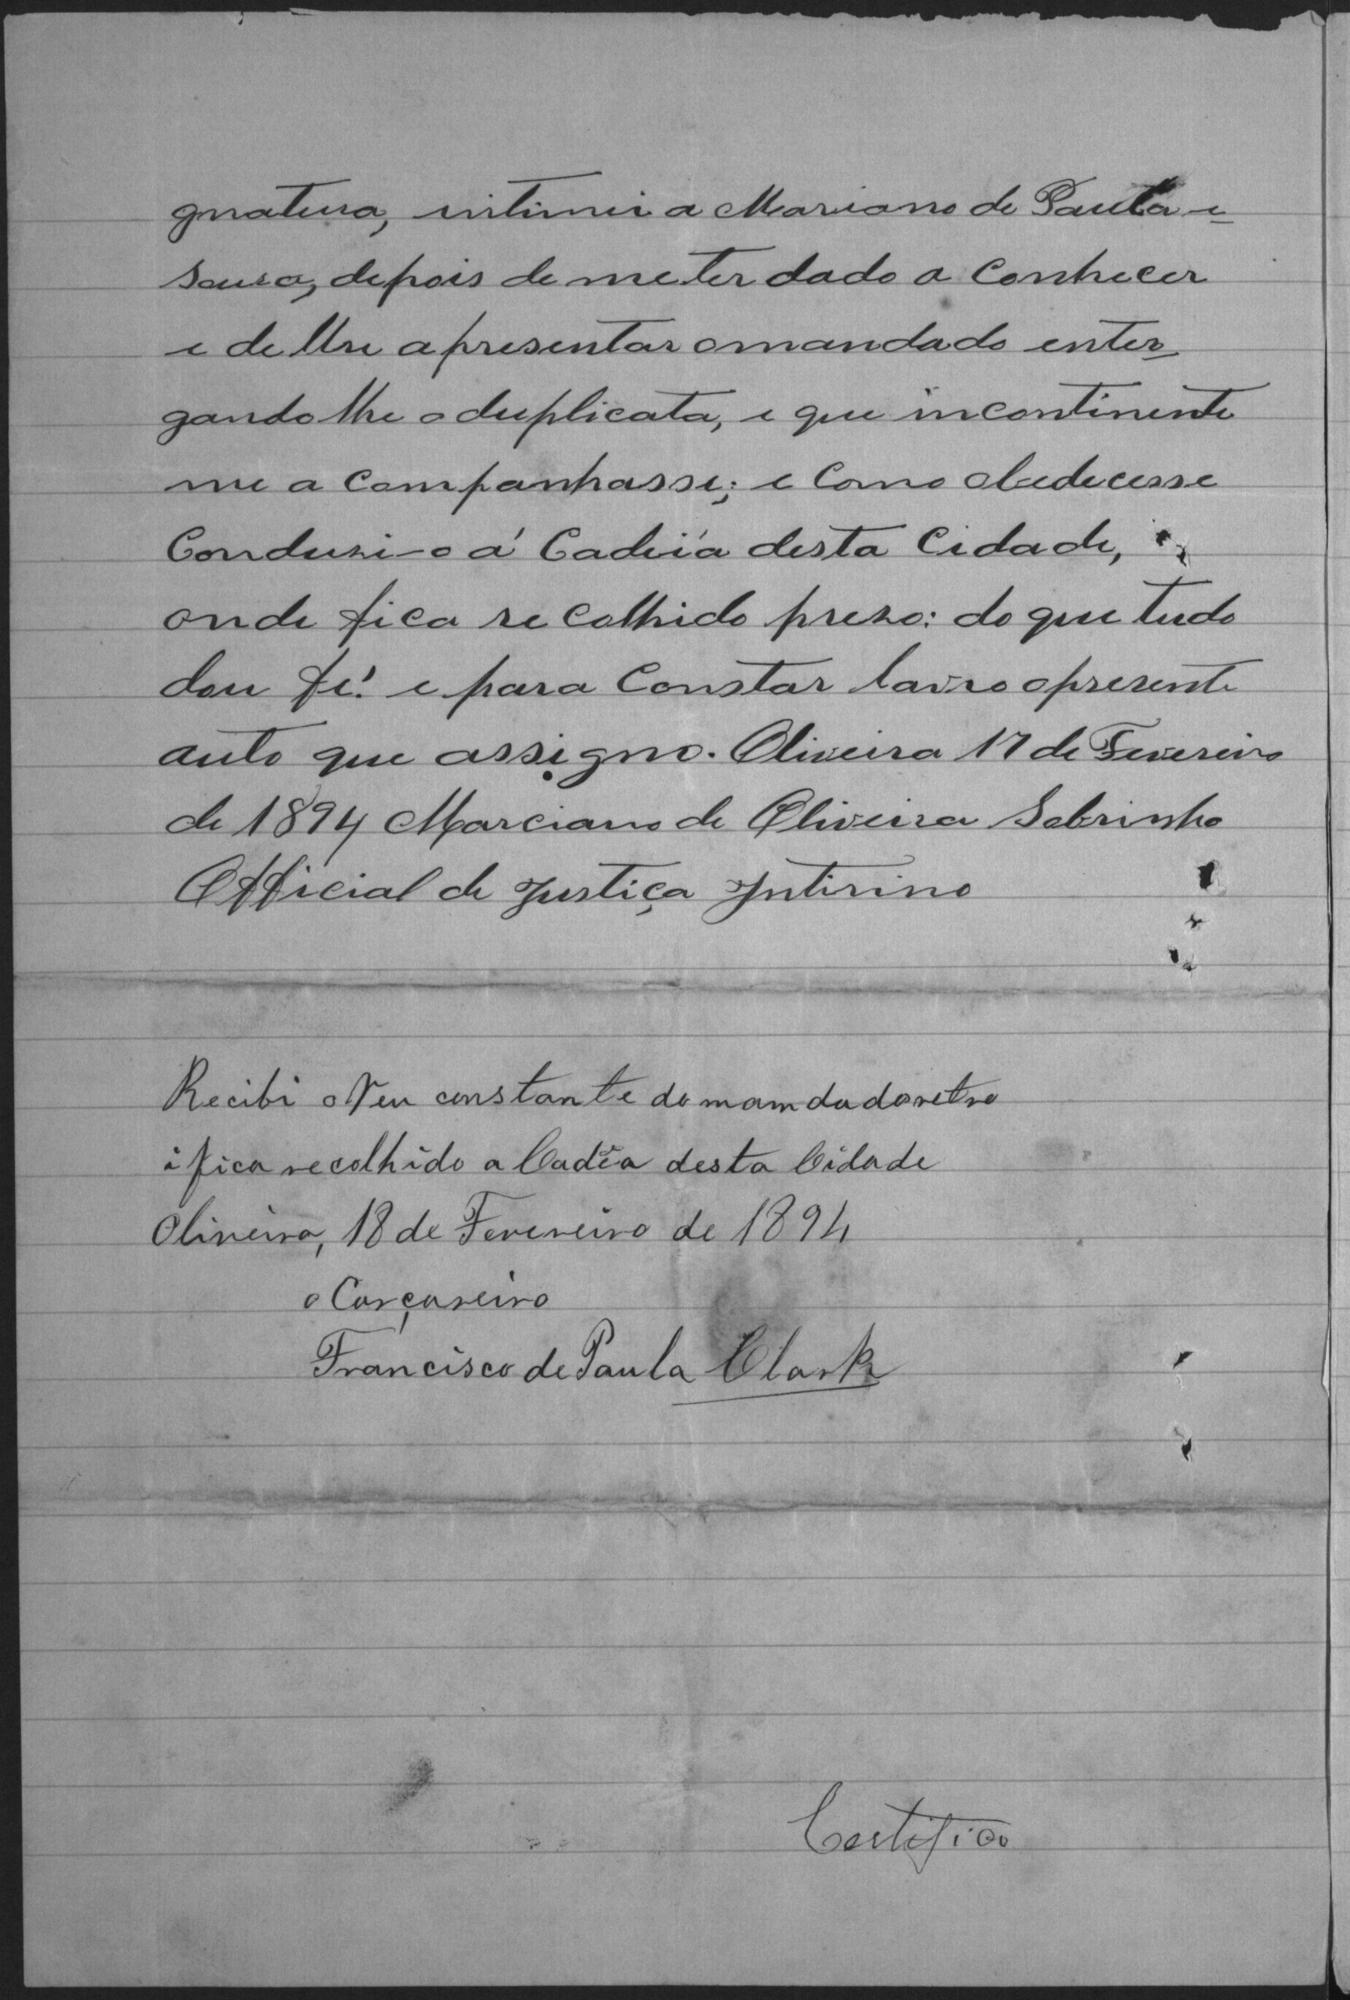 gnatura, intimei a Mariano de Paula e
Sousa, depois de me ter dado a conhecer
e de lhe apresentar o mandado enter-
gando lhe o duplicata, e que incontinente
me a companhasse; e como obedecesse
Conduzi-o á Cadeia desta Cidade,
onde fica recolhido prezo: do que tudo
dou fé. e para constar lavro o presente
auto que assigno. Oliveira 17 de Fevereiro
de 1894 Marciano de Oliveira Sobrinho
Official de Justiça Intirino
Recibi o Reu constante do mamdado retro
i fica recolhido a Cadêa desta Cidade
Oliveira, 18 de Fevereiro de 1894
o Carçareiro
Francisco de Paula Clark
Certifico